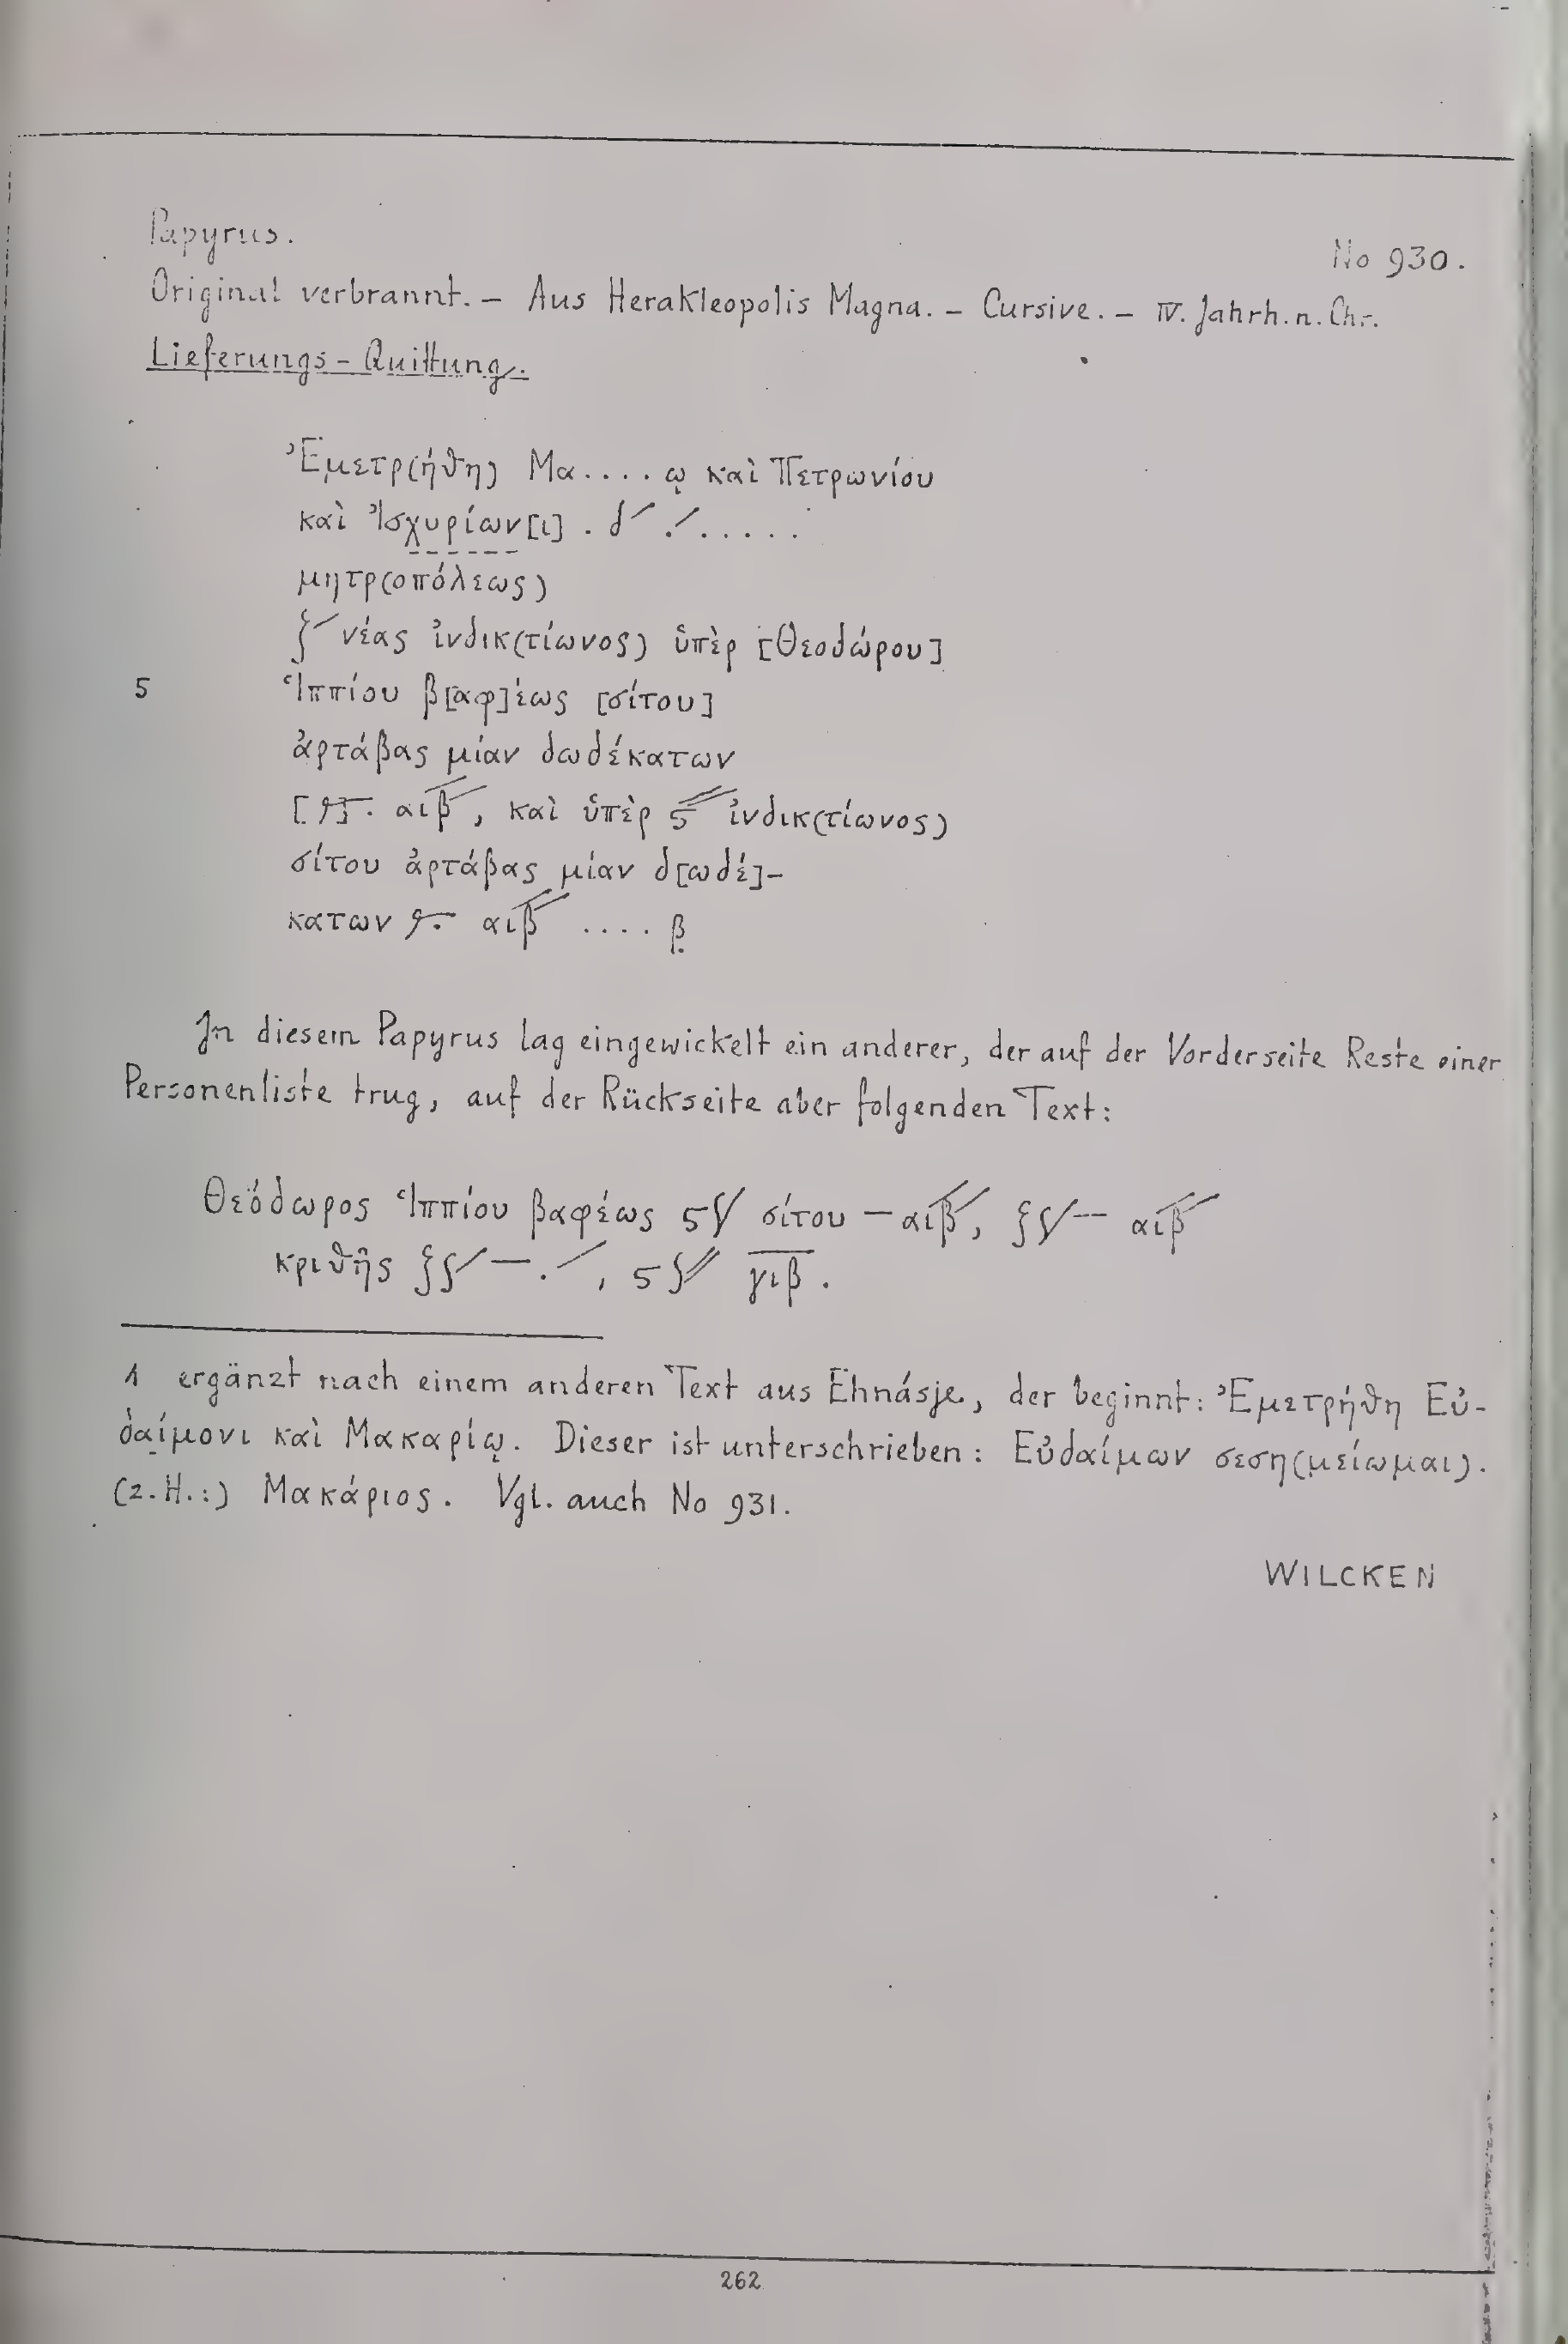 Papyrus.
No 930.
Original verbrannt. – Aus Herakleopolis Magna. – Cursive. – IV. Jahrh. n. Chr.
Lieferungs-Quittung.
Ἐμετρ(ήθη) Μα....ῳ καὶ Πετρωνίου
καὶ Ἰσχυρίων[ι] . δ ´ .´.....
μητρ(οπόλεως)
ζ´ νέας ἰνδικ(τίωνος) ὑπὲρ [Θεοδώρου]
5 Ἱππίου β[αφ]έως [σίτου]
ἀρτάβας μίαν δωδέκατων
αιβ´´, καὶ ὑπὲρ ϛ´´ ἰνδικ(τίωνος)
σίτου ἀρτάβας μίαν δ[ωδέ]-
κατων αιβ´´ .... β̣
In diesem Papyrus lag eingewickelt ein anderer, der auf der Vorderseite Reste einer
Personenliste trug, auf der Rückseite aber folgenden Text:
Θεόδωρος Ἱππίου βαφέως ϛ σίτου — αιβ´´, ζ — αιβ´´
κριθῆς ζ — .´, ϛ γιβ.
1 ergänzt nach einem anderen Text aus Ehnásje, der beginnt: Ἐμετρήθη Εὐ-
δαίμονι καὶ Μακαρίῳ. Dieser ist unterschrieben: Εὐδαίμων σεση(μείωμαι).
(2. H.:) Μακάριος. Vgl. auch No 931.
WILCKEN
262